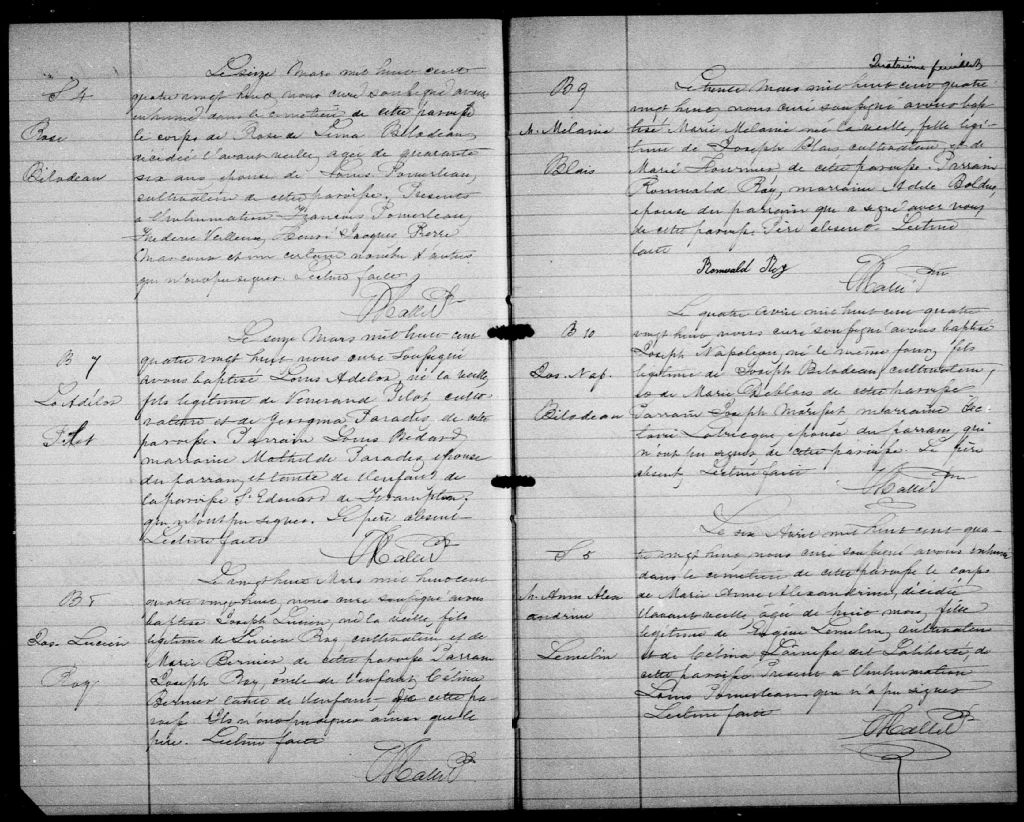 S 4
Rose
Bilodeau
Le seize Mars mil huit cent
quatre vingt huit, nous curé soussigné avons
inhumé dans le cimetière de cette paroisse
le corps de Rose de Lima Bilodeau,
décédée l'avant veille, agée de quarante
six ans, épouse de Louis Pomerleau,
cultivateur de cette paroisse. Présents
à l'inhumation François Pomerleau,
Frederic Veilleux, Henri Jacques Pierre
Marcoux et un certain nombre d'autres
qui n'ont pu signer. Lecture faite
B 7
Ls Adélor
Pilot
Le seize Mars mil huit cent
quatre vingt huit nous curé soussigné
avons baptisé Louis Adélor, né la veille,
fils légitime de Venerand Pilot culti-
vateur et de Georgina Paradis, de cette
paroisse. Parrain Louis Bédard
marraine Mathilde Paradis, épouse
du parrain, et tante de l'enfant, de
la paroisse St Edouard de Frampton,
qui n'ont pu signer. Le père absent
Lecture faite
B 8
Jos. Lucien
Roy
Le vingt huit Mars mil huit cent
quatre vingt huit, nous curé soussigné avons
baptisé Joseph Lucien, né la veille, fils
légitime de Lucien Roy, cultivateur et de
Marie Bernier de cette paroisse Parrain
Joseph Roy, oncle de l'enfant, Celina
Bernier tante de l'enfant de cette pa-
roisse Ils n'ont pu signer ainsi que le
père. Lecture faite
Quatrième feuillet
B 9
M. Mélanie
Blais
Le trente Mars mil huit cent quatre
vingt huit, nous curé soussigné avons bap-
tisé Marie Melanie née la veille, fille légi-
time de Joseph Blais cultivateur, et de
Marie Fournier de cette paroisse. Parrain
Romuald Roy, marraine Adele Bolduc,
épouse du parrain qui a signé avec nous,
de cette paroisse. Père absent. Lecture
faite
Romuald Roy
B 10
Jos. Nap.
Bilodeau
Le quatre Avril mil huit cent quatre
vingt huit nous curé soussigné avons baptisé
Joseph Napoleon, né le même jour, fils
légitime de Joseph Bilodeau, cultivateur,
et de Marie Deblois de cette paroisse
Parrain Joseph marraine
Labrecque, épouse du parrain, qui
n'ont pu signer de cette paroisse. Le père
absent, Lecture faite
S 5
M. Anna Alex
andrine
Lemelin
Le six Avril mil huit cent qua-
tre vingt huit nous curé soussigné avons inhumé
dans le cimetière de cette paroisse le corps
de Marie Anne Alexandrine, décédée
l'avant veille, agée de huit mois, fille
légitime de Eugène Lemelin, cultivateur
et de Celina Laliberté, de
cette paroisse Présent à l'inhumation
Louis Pomerleau qui n'a pu signer
Lecture faite